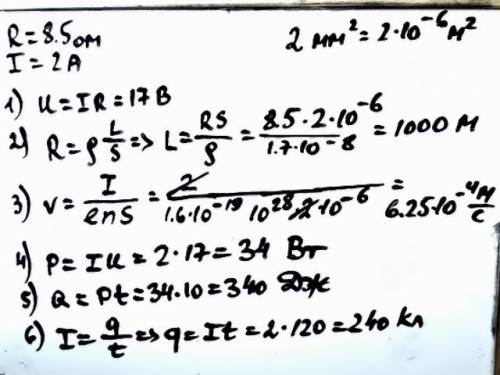 R=8.5ом
I=2A
2 мм²=2·10⁻⁶м²
1) U=IR=17В
2) R=ρ L/S => L= RS/ρ = 8.5·2·10⁻⁶/1.7·10⁻⁸ =1000 М
3) v= I/enS = 2/1.6·10⁻¹⁹ 10²⁸·2·10⁻⁶ = 6.25·10⁻⁴ м/с
4) P=IU=2·17=34 Вт
5) Q=Pt=34·10=340 Дж
6) I= q/t => q=It=2·120=240 Кл